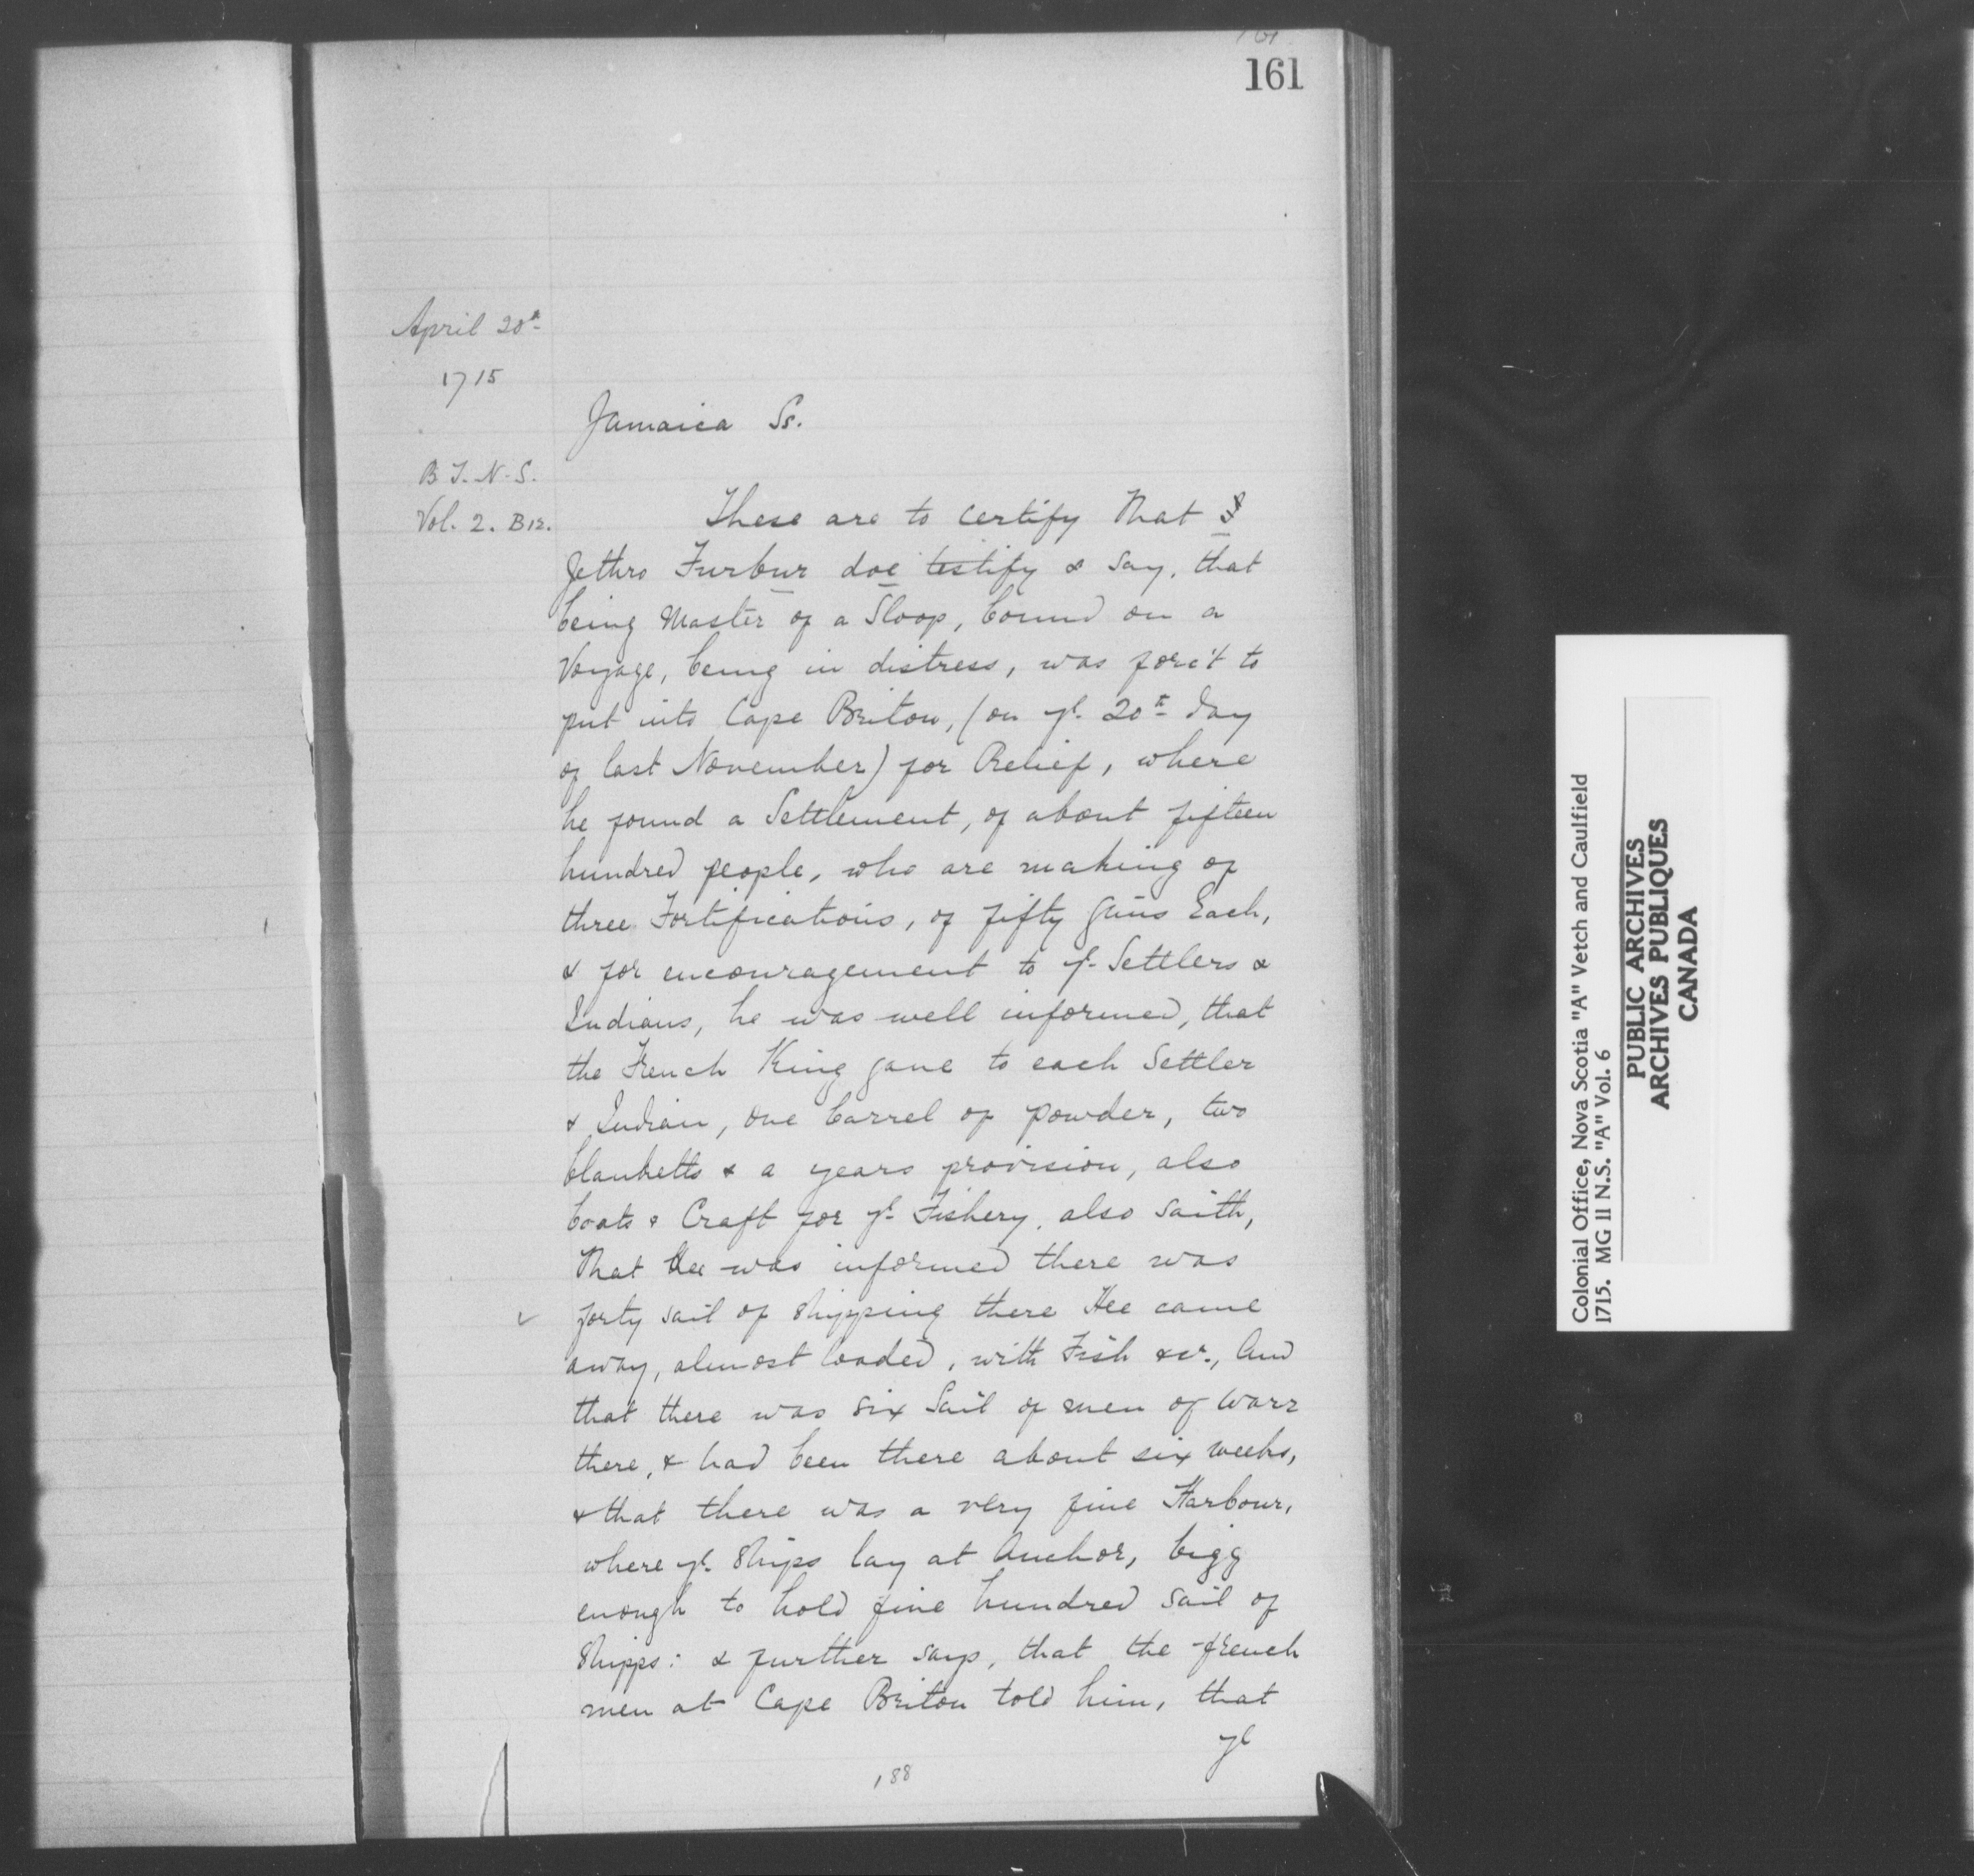 161
161
April 20th
1715
Jamaica Ss.
B. T. N. S.
Vol. 2. B12.
These are to certify That I
Jethro Furbur doe testify & say, that
being Master of a Sloop, bound on a
Voyage, being in distress, was forc't to
put into Cape Briton, (on ye 20th day
of last November) for Relief, where
he found a Settlement, of about fifteen
hundred people, who are making of
three Fortifications, of fifty guns Each,
& for encouragement to ye Settlers &
Indians, he was well informed, that
the French King gave to each Settler
& Indian, one barrel of powder, two
blanketts & a years provision, also
boats & Craft for ye Fishery. also saith,
That Hee was informed there was
forty sail of shipping there Hee came
away, almost loaded, with Fish &cr., And
that there was six Sail of men of Warr
there, & had been there about six weeks,
& that there was a very fine Harbour,
where ye Ships lay at Anchor, bigg
enough to hold five hundred sail of
Shipps: & further says, that the french
men at Cape Briton told him, that
ye
188
Colonial Office, Nova Scotia "A" Vetch and Caulfield
1715. MG 11 N.S. "A" Vol. 6
PUBLIC ARCHIVES
ARCHIVES PUBLIQUES
CANADA